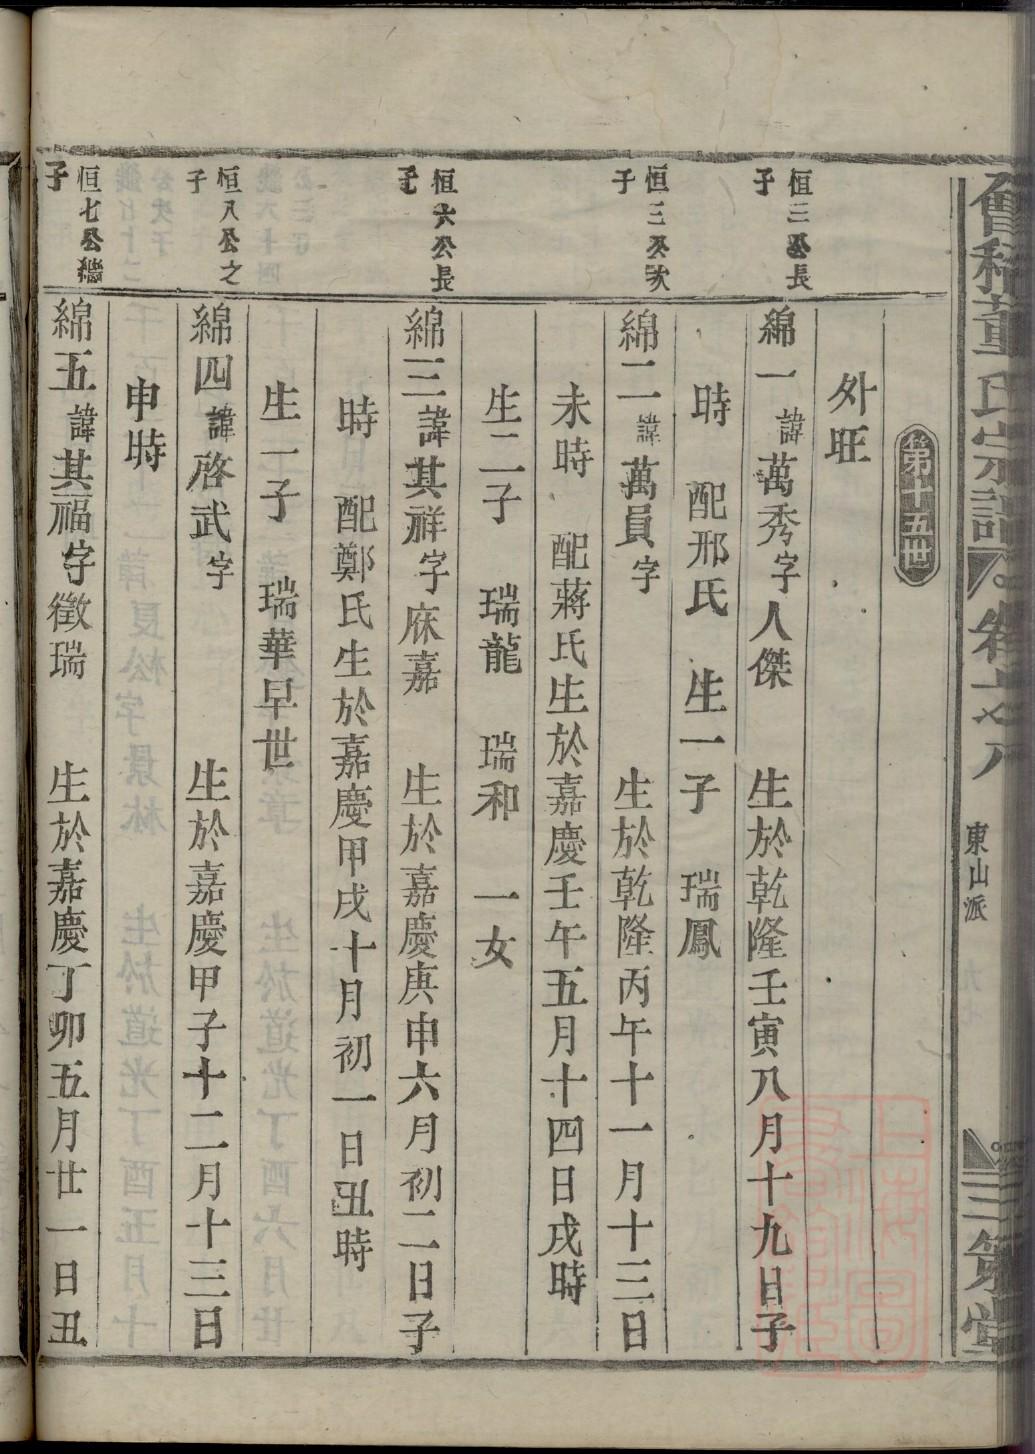 會稽董氏宗譜
東山派
三策堂
外旺
第十五世
恒三公長子
綿一諱萬秀字人傑 生於乾隆壬寅八月十九日子
時 配邢氏 生一子 瑞鳳
恒三公次子
綿二諱萬員字 生於乾隆丙午十一月十三日
未時 配蔣氏生於嘉慶壬午五月十四日戌時
生二子 瑞龍 瑞和 一女
恒六公長子
綿三諱其祥字庥嘉 生於嘉慶庚申六月初二日子
時 配鄭氏生於嘉慶甲戌十月初一日丑時
生一子 瑞華早世
恒八公之子
綿四諱啓武字 生於嘉慶甲子十二月十三日
申時
恒七公繼子
綿五諱其福字徵瑞 生於嘉慶丁卯五月廿一日丑